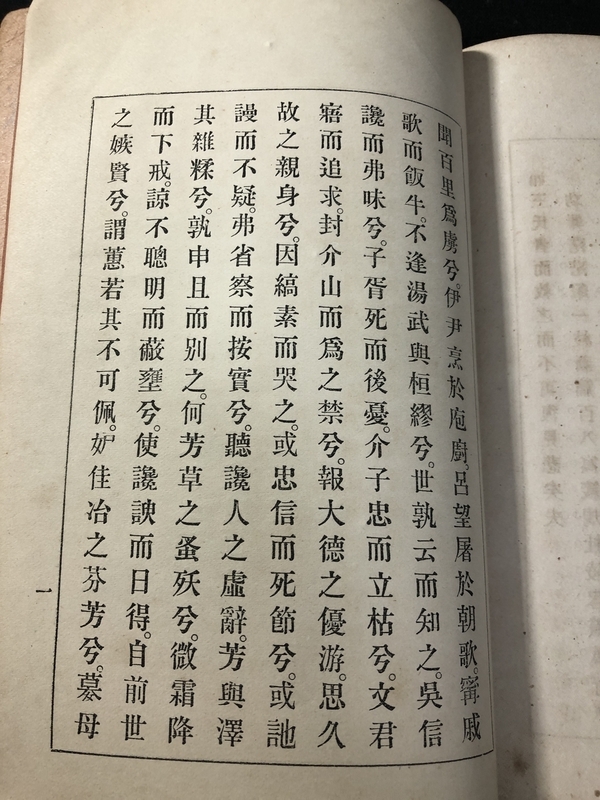 聞百里爲虜兮。伊尹烹於庖廚。呂望屠於朝歌。甯戚
歌而飯牛。不逢湯武與桓繆兮。世孰云而知之。吳信
讒而弗味兮。子胥死而後憂。介子忠而立枯兮。文君
寤而追求。封介山而爲之禁兮。報大德之優游。思久
故之親身兮。因縞素而哭之。或忠信而死節兮。或訑
謾而不疑。弗省察而按實兮。聽讒人之虛辭。芳與澤
其雜糅兮。孰申旦而别之。何芳草之蚤殀兮。微霜降
而下戒。諒不聰明而蔽壅兮。使讒諛而日得。自前世
之嫉賢兮。謂蕙若其不可佩。妒佳冶之芬芳兮。嫫母
一